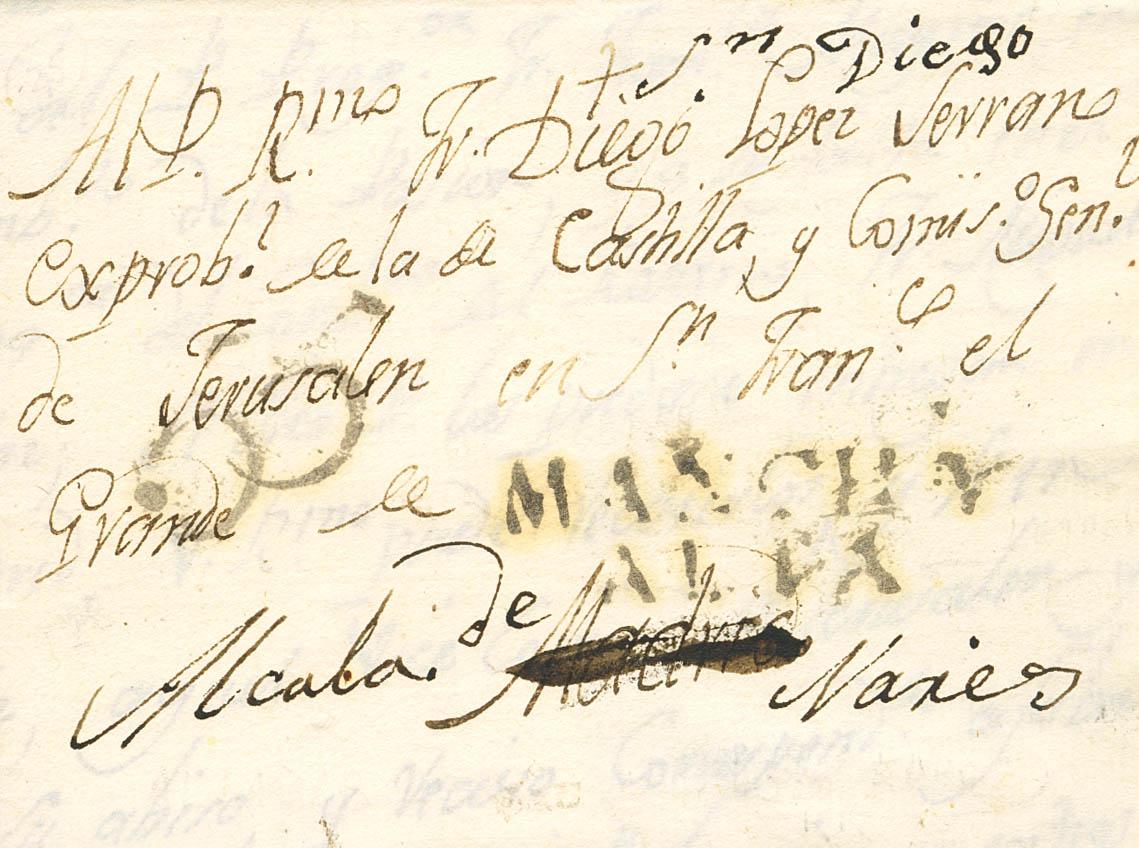 Sn Diego
Al P. Rmo Fr. Diego Lopez Serrano
Exprobl. de la de Castilla, y Comiso. Genl.
de Jerusalen en Sn. Franco. el
Grande de
MANCHA
ALTA
Alcala. de Madrid Nares